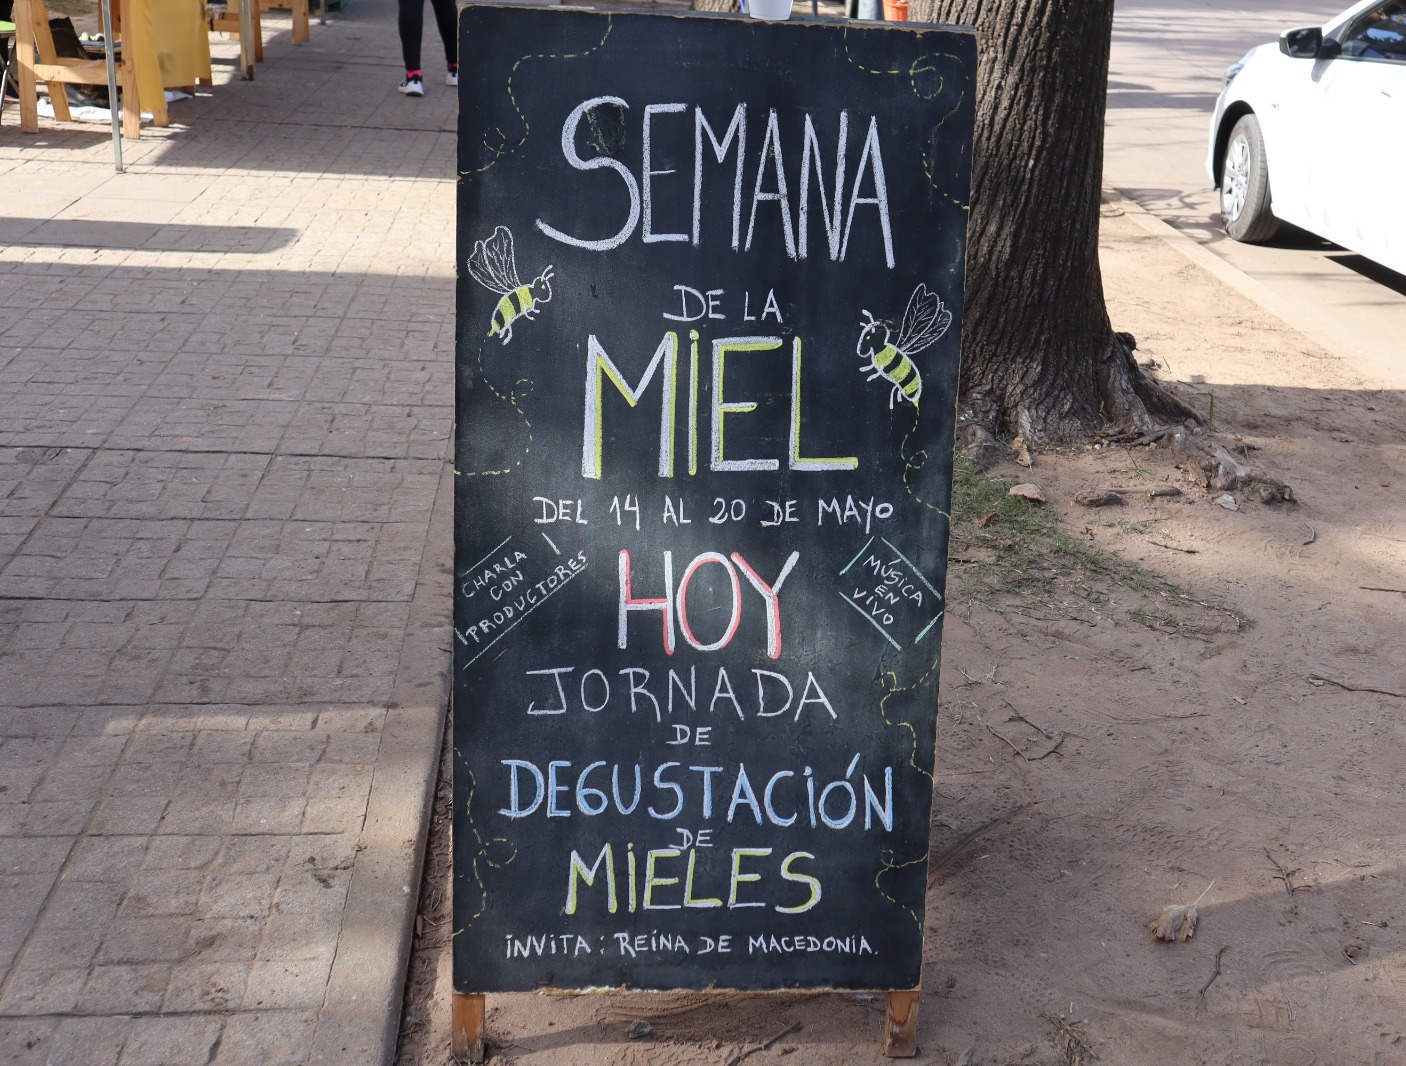 SEMANA
DE LA
MiEL
DEL 14 AL 20 DE MAYO
CHARLA
CON
PRODUCTORES
HOY
MÚSICA
EN
VIVO
JORNADA
DE
DEGUSTACiÓN
DE
MiELES
iNViTA: REiNA DE MACEDONiA.